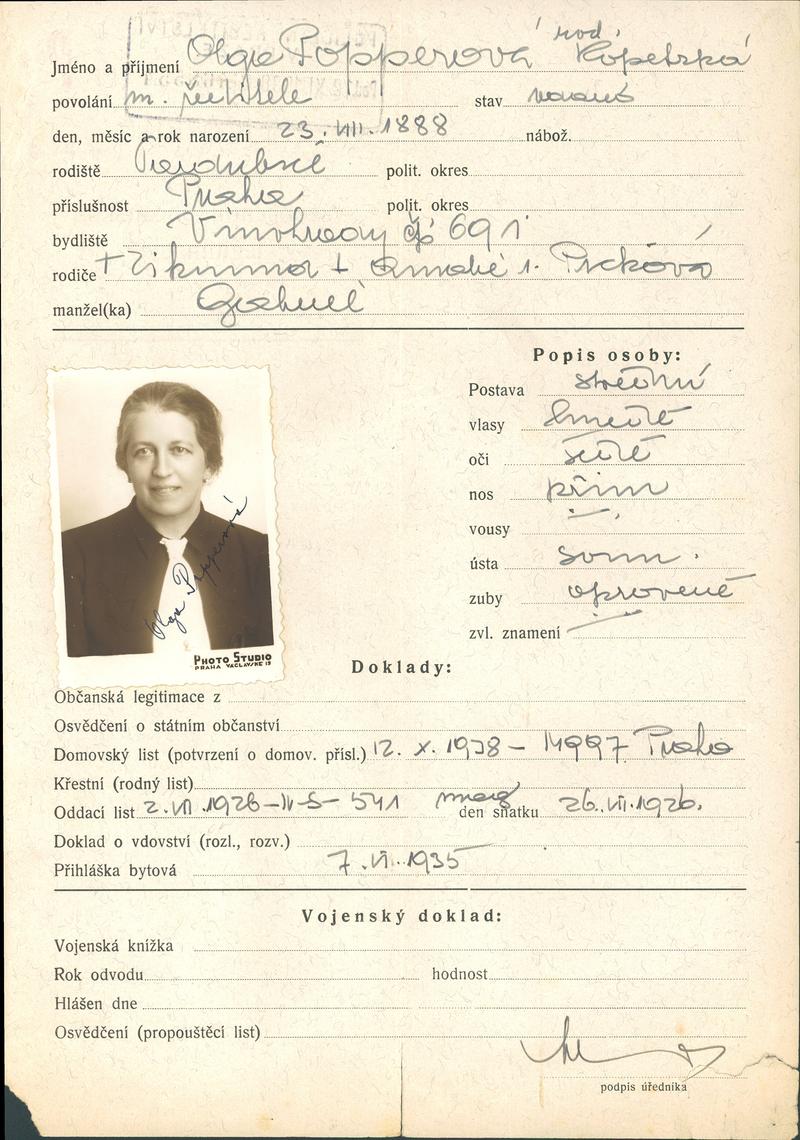 Jméno a příjmení Olga Popperová rod. Kopetzká
povolání m. ředitele stav vdaná
den, měsíc a rok narození 23. VII. 1888 nábož.
rodiště Pardubice polit. okres
příslušnost Praha polit. okres
bydliště Vinohrady čp 691
rodiče + Zikmund + r. Picková
manžel(ka)
Popis osoby:
Postava střední
vlasy hnědé
oči šedé
nos přím
vousy —
ústa soum.
zuby opravené
zvl. znamení —
Olga Popperová
PHOTO STUDIO
PRAHA VÁCLAVSKÉ 15
Doklady:
Občanská legitimace z
Osvědčení o státním občanství
Domovský list (potvrzení o domov. přísl.) 12. X. 1938 – 14997 Praha
Křestní (rodný list)
Oddací list 2. VII. 1926 – IV-S- 541 mag den sňatku 26. VI. 1926.
Doklad o vdovství (rozl., rozv.)
Přihláška bytová 7. VI. 1935
Vojenský doklad:
Vojenská knížka
Rok odvodu hodnost
Hlášen dne
Osvědčení (propouštěcí list)
podpis úředníka